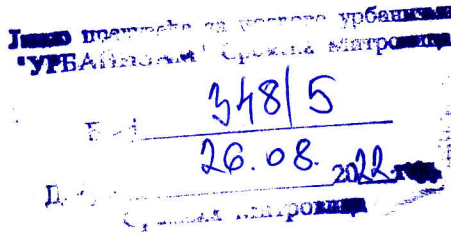 Јавно предузеће за послове урбанизма
"УРБАНИЗАМ" Сремска Митровица
348/5
26.08. 2022. год.
Сремска Митровица